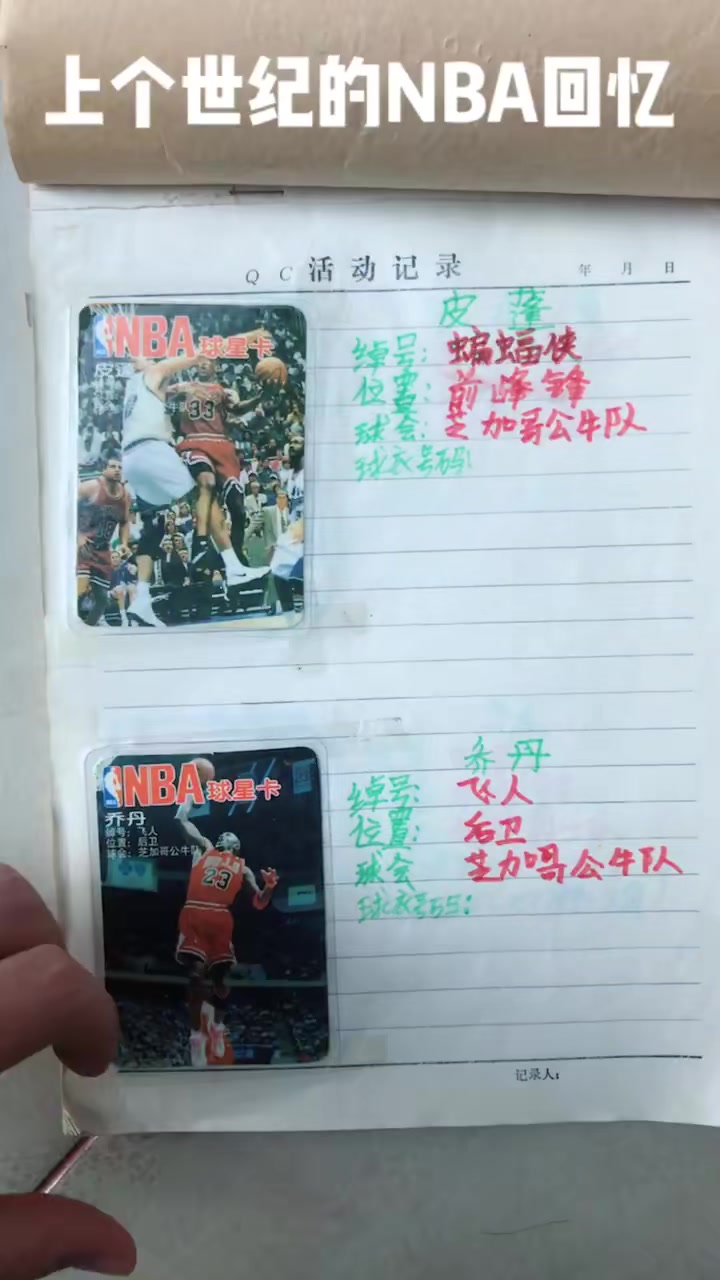 上个世纪的NBA回忆
QC 活动记录 年 月 日
NBA球星卡
33
皮蓬
绰号：蝙蝠侠
位置：前峰锋
球会：芝加哥公牛队
球衣号码：
NBA球星卡
乔丹
绰号：飞人
位置：后卫
球会：芝加哥公牛队
23
乔丹
绰号：飞人
位置：后卫
球会 芝加哥公牛队
球衣号码：
记录人：